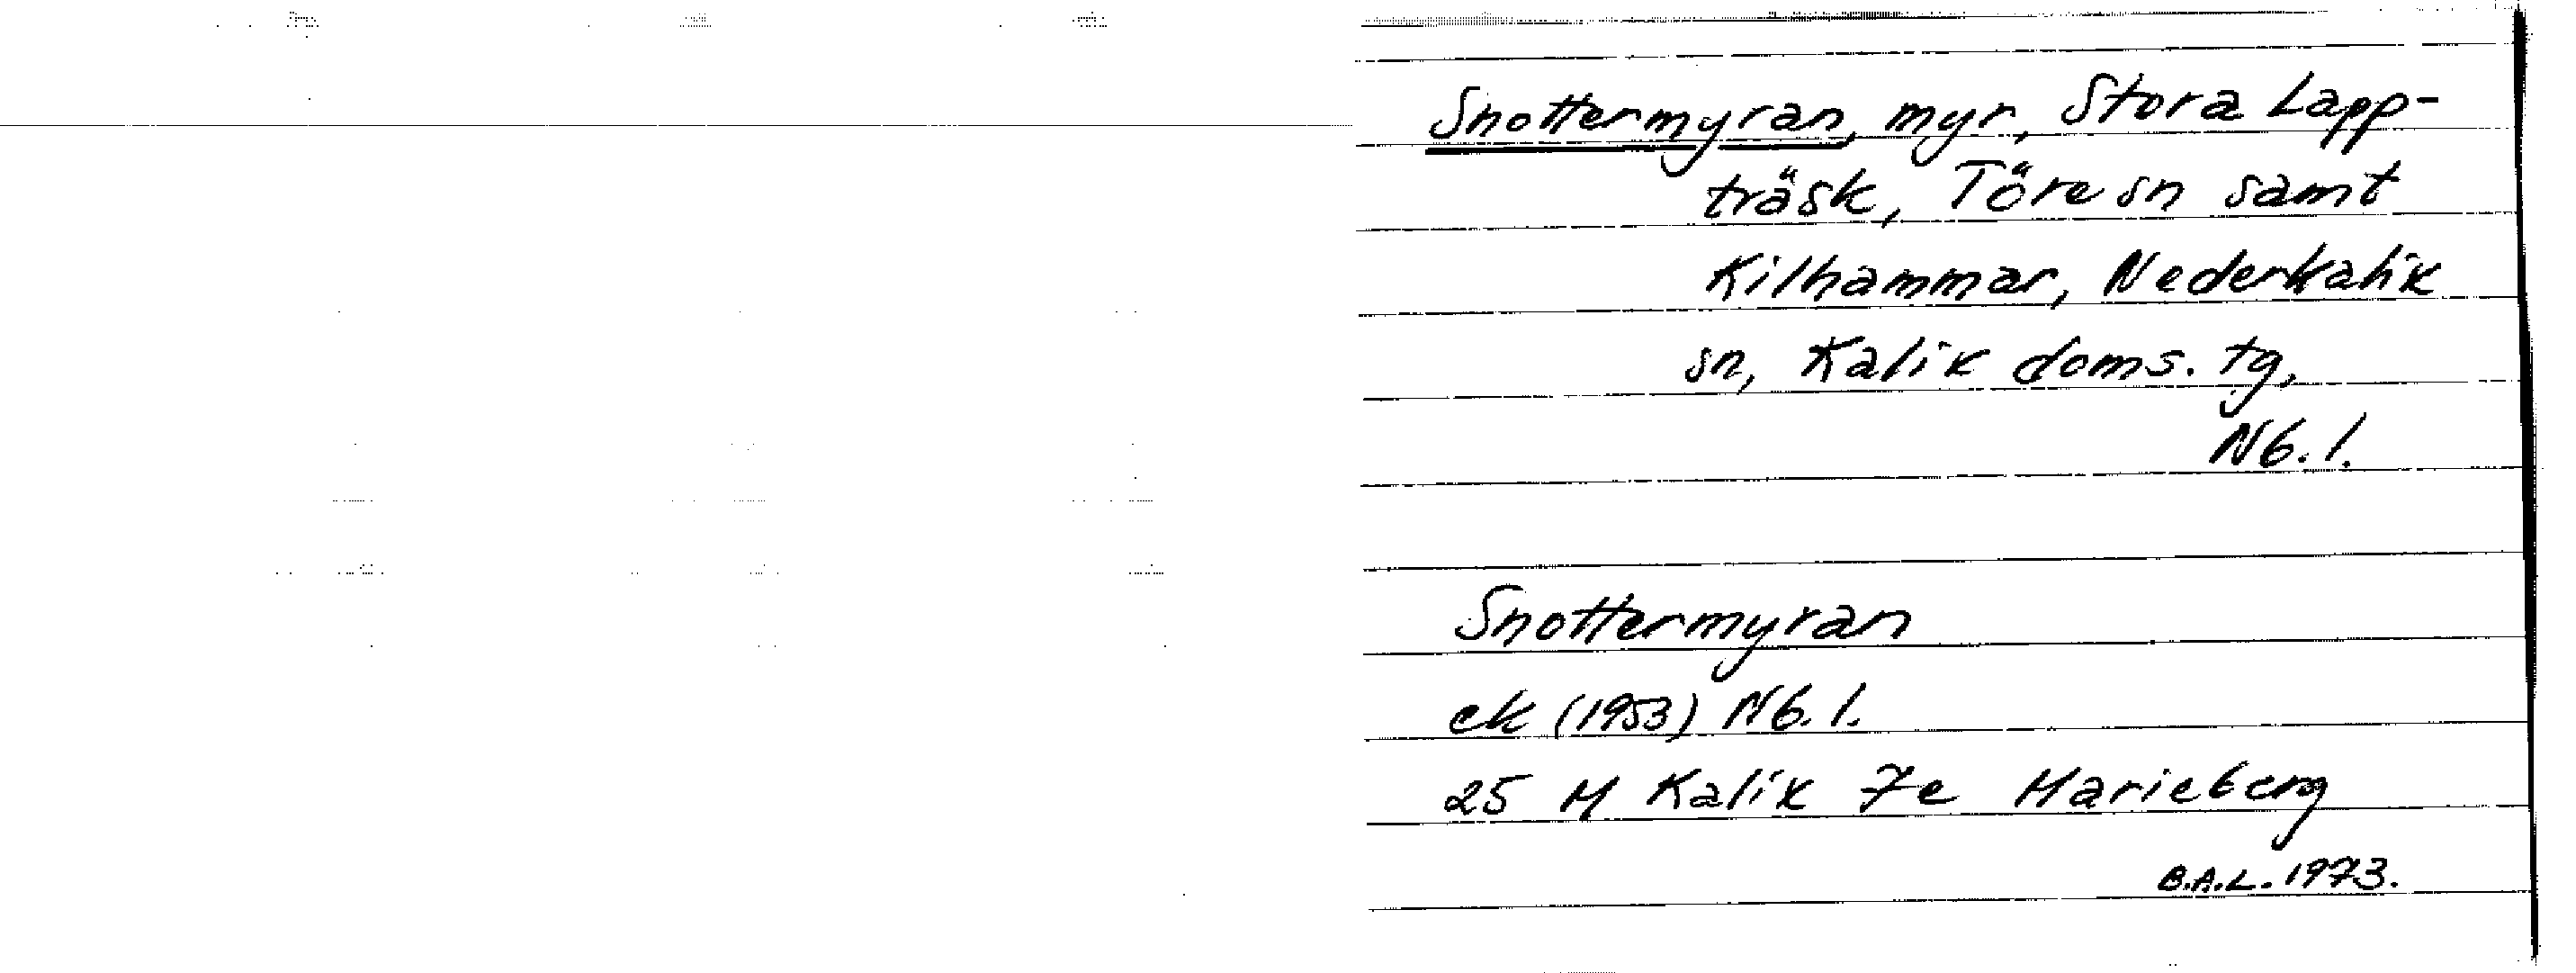 Snottermyran, myr, Stora Lapp-
träsk, Töre sn samt
Kilhammar, Nederkalix
sn, Kalix doms. tg,
Nb. l.
Snottermyran
ek (1953) Nb. l.
25 M Kalix 7e Marieberg
B.A.L. 1973.